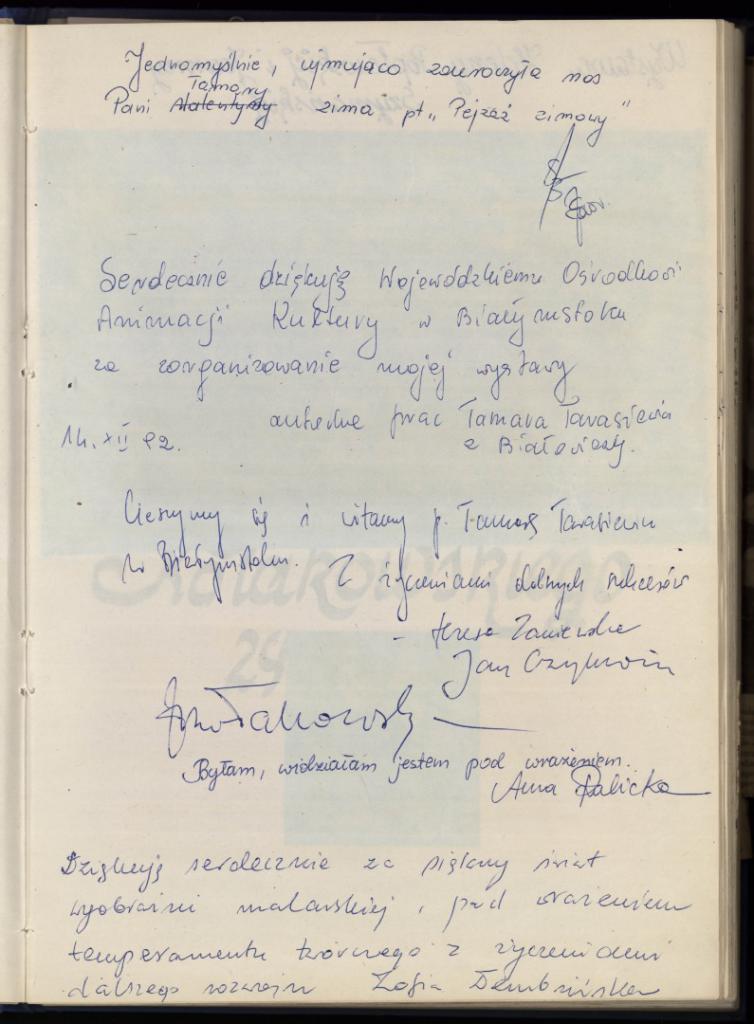 Jednomyślnie, ujmująco zauroczyła nas
Tamary
Pani Walentyny zima pt „Pejzaż zimowy"
Serdecznie dziękuję Wojewódzkiemu Ośrodkowi
Animacji Kultury w Białymstoku
za zorganizowanie mojej wystawy
autorka prac Tamara Tarasiewicz
14. XII 92.
z Białowieży.
Cieszymy się i witamy p. Tamarę Tarasiewicz
w Białymstoku. Z życzeniami dalszych sukcesów
– Teresa Zaniewska
Jan Czykwin
Byłam, widziałam jestem pod wrażeniem.
Anna Palicka
Dziękuję serdecznie za piękny świat
wyobraźni malarskiej, pod wrażeniem
temperamentu twórczego z życzeniami
dalszego rozwoju Zofia Dembińska
29